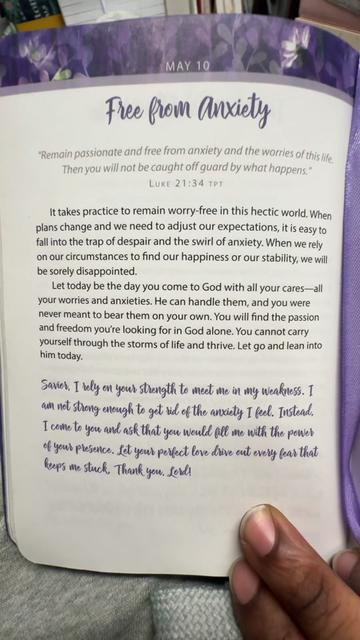 MAY 10
Free from Anxiety
"Remain passionate and free from anxiety and the worries of this life.
Then you will not be caught off guard by what happens."
LUKE 21:34 TPT
It takes practice to remain worry-free in this hectic world. When
plans change and we need to adjust our expectations, it is easy to
fall into the trap of despair and the swirl of anxiety. When we rely
on our circumstances to find our happiness or our stability, we will
be sorely disappointed.
Let today be the day you come to God with all your cares—all
your worries and anxieties. He can handle them, and you were
never meant to bear them on your own. You will find the passion
and freedom you're looking for in God alone. You cannot carry
yourself through the storms of life and thrive. Let go and lean into
him today.
Savior, I rely on your strength to meet me in my weakness. I
am not strong enough to get rid of the anxiety I feel. Instead,
I come to you and ask that you would fill me with the power
of your presence. Let your perfect love drive out every fear that
keeps me stuck. Thank you, Lord!